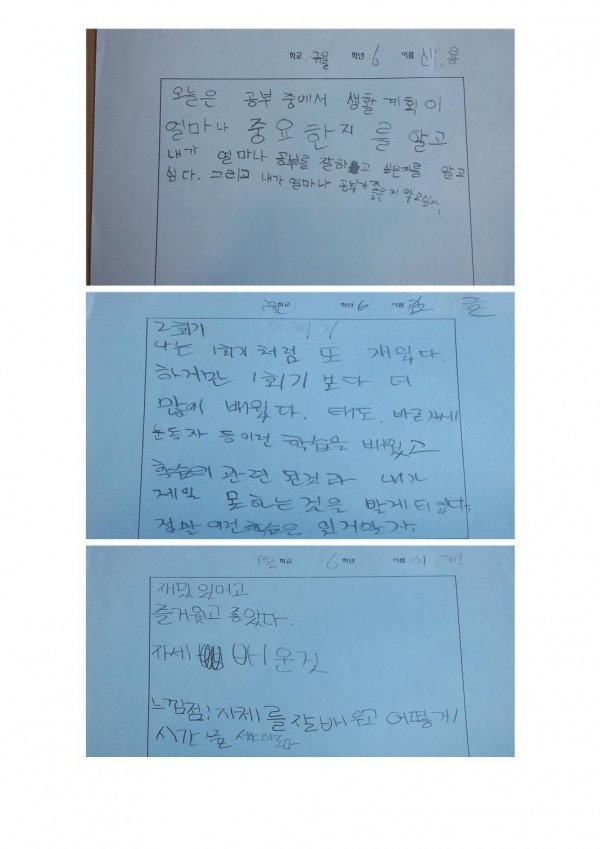 학교 : 구월 학년 : 6 이름 : 신 용
오늘은 공부 중에서 생활 계획이
얼마나 중요한지를 알고
내가 얼마나 공부를 잘하고 싶은지를 알고
싶다. 그리고 내가 얼마나 공부가
지 알고싶다.
구월 학교 : 학년 6 이름
2회기
나는 1회기 처럼 또 재밌다.
하거만 1회기 보다 더
많이 배웠다. 태도. 바른자세
눈동자 등 이런 학습을 배웠고
학습이 관련 된것과 내가
제일 못하는 것을 알게 되었다.
정말 이런 학습은
학교 : 6 학년 : 이름 : 이
재밌 있어고
즐거웠고 좋았다.
자세 배운것
느낌점! 자세를 잘배우고 어떻게
시간